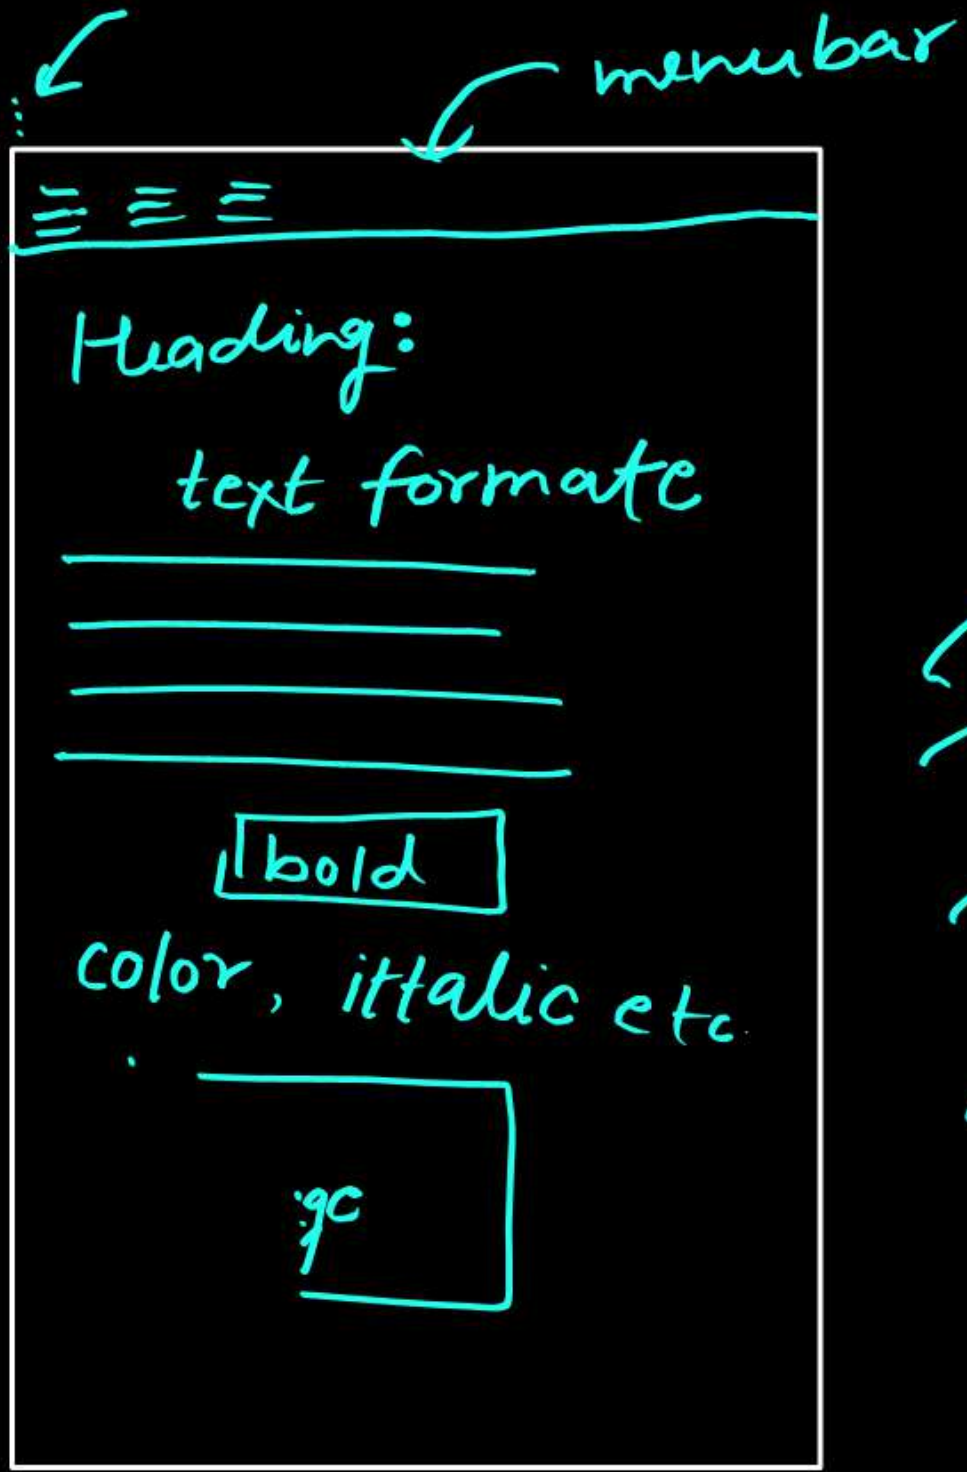 menubar
Heading:
text formate
bold
color, ittalic etc.